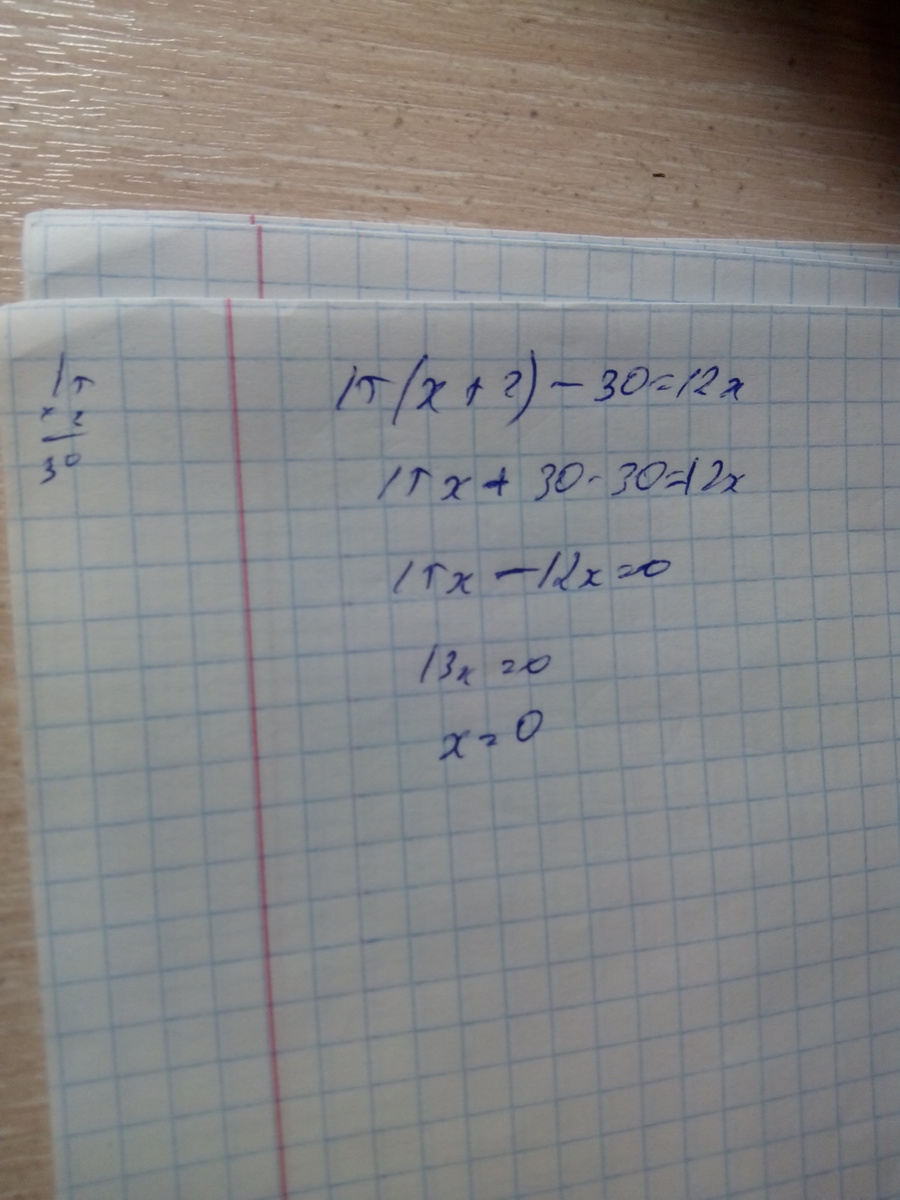 15
× 2
30
15(x + 2) - 30 = 12x
15x + 30 - 30 = 12x
15x - 12x = 0
13x = 0
x = 0